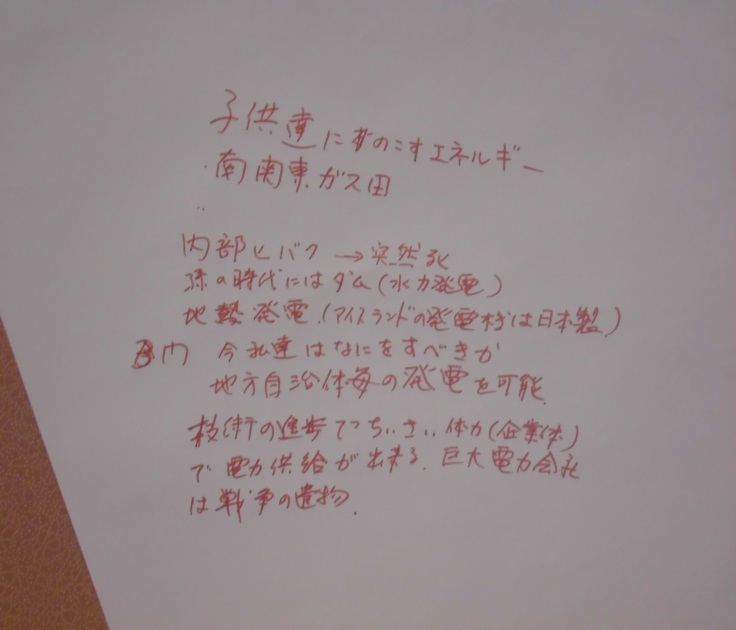 子供達にのこすエネルギー
・南関東ガス田
‥
内部ヒバク → 突然死
孫の時代にはダム(水力発電)
地熱発電.(アイスランドの発電機は日本製)
今私達はなにをすべきか
地方自治体毎の発電を可能.
技術の進歩でちいさい体力(企業体)
で電力供給が出来る.巨大電力会社
は戦争の遺物.